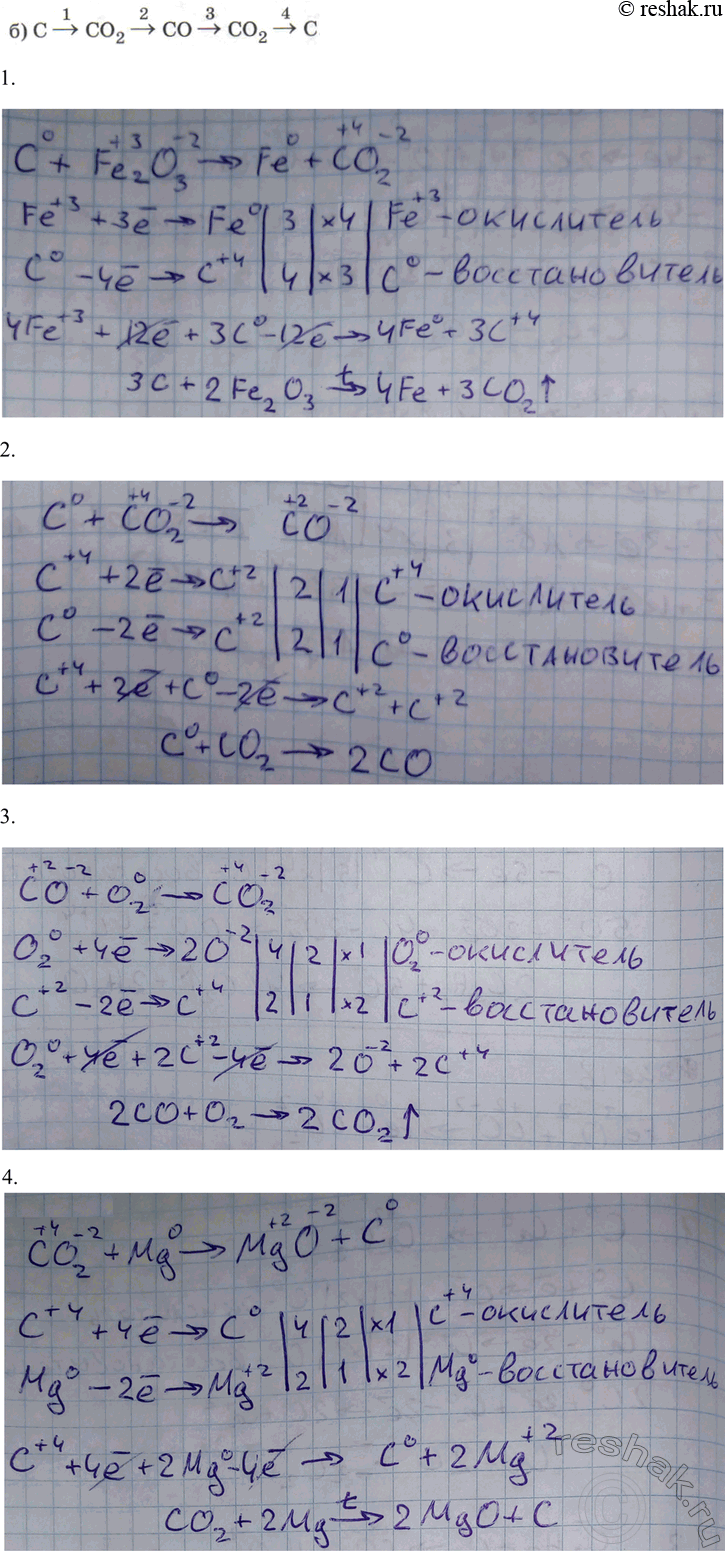 © reshak.ru
б) C →¹ CO₂ →² CO →³ CO₂ →⁴ C
1.
C⁰ + Fe₂⁺³O₃⁻² → Fe⁰ + C⁺⁴O₂⁻²
Fe⁺³ + 3ē → Fe⁰ | 3 | ×4 | Fe⁺³ - окислитель
C⁰ - 4ē → C⁺⁴ | 4 | ×3 | C⁰ - восстановитель
4Fe⁺³ + 12ē + 3C⁰ - 12ē → 4Fe⁰ + 3C⁺⁴
3C + 2Fe₂O₃ →ᵗ 4Fe + 3CO₂↑
2.
C⁰ + C⁺⁴O₂⁻² → C⁺²O⁻²
C⁺⁴ + 2ē → C⁺² | 2 | 1 | C⁺⁴ - окислитель
C⁰ - 2ē → C⁺² | 2 | 1 | C⁰ - восстановитель
C⁺⁴ + 2ē + C⁰ - 2ē → C⁺² + C⁺²
C⁰ + CO₂ → 2CO
3.
C⁺²O⁻² + O₂⁰ → C⁺⁴O₂⁻²
O₂⁰ + 4ē → 2O⁻² | 4 | 2 | ×1 | O₂⁰ - окислитель
C⁺² - 2ē → C⁺⁴ | 2 | 1 | ×2 | C⁺² - восстановитель
O₂⁰ + 4ē + 2C⁺² - 4ē → 2O⁻² + 2C⁺⁴
2CO + O₂ → 2CO₂↑
4.
C⁺⁴O₂⁻² + Mg⁰ → Mg⁺²O⁻² + C⁰
C⁺⁴ + 4ē → C⁰ | 4 | 2 | ×1 | C⁺⁴ - окислитель
Mg⁰ - 2ē → Mg⁺² | 2 | 1 | ×2 | Mg⁰ - восстановитель
C⁺⁴ + 4ē + 2Mg⁰ - 4ē → C⁰ + 2Mg⁺²
CO₂ + 2Mg →ᵗ 2MgO + C
reshak.ru